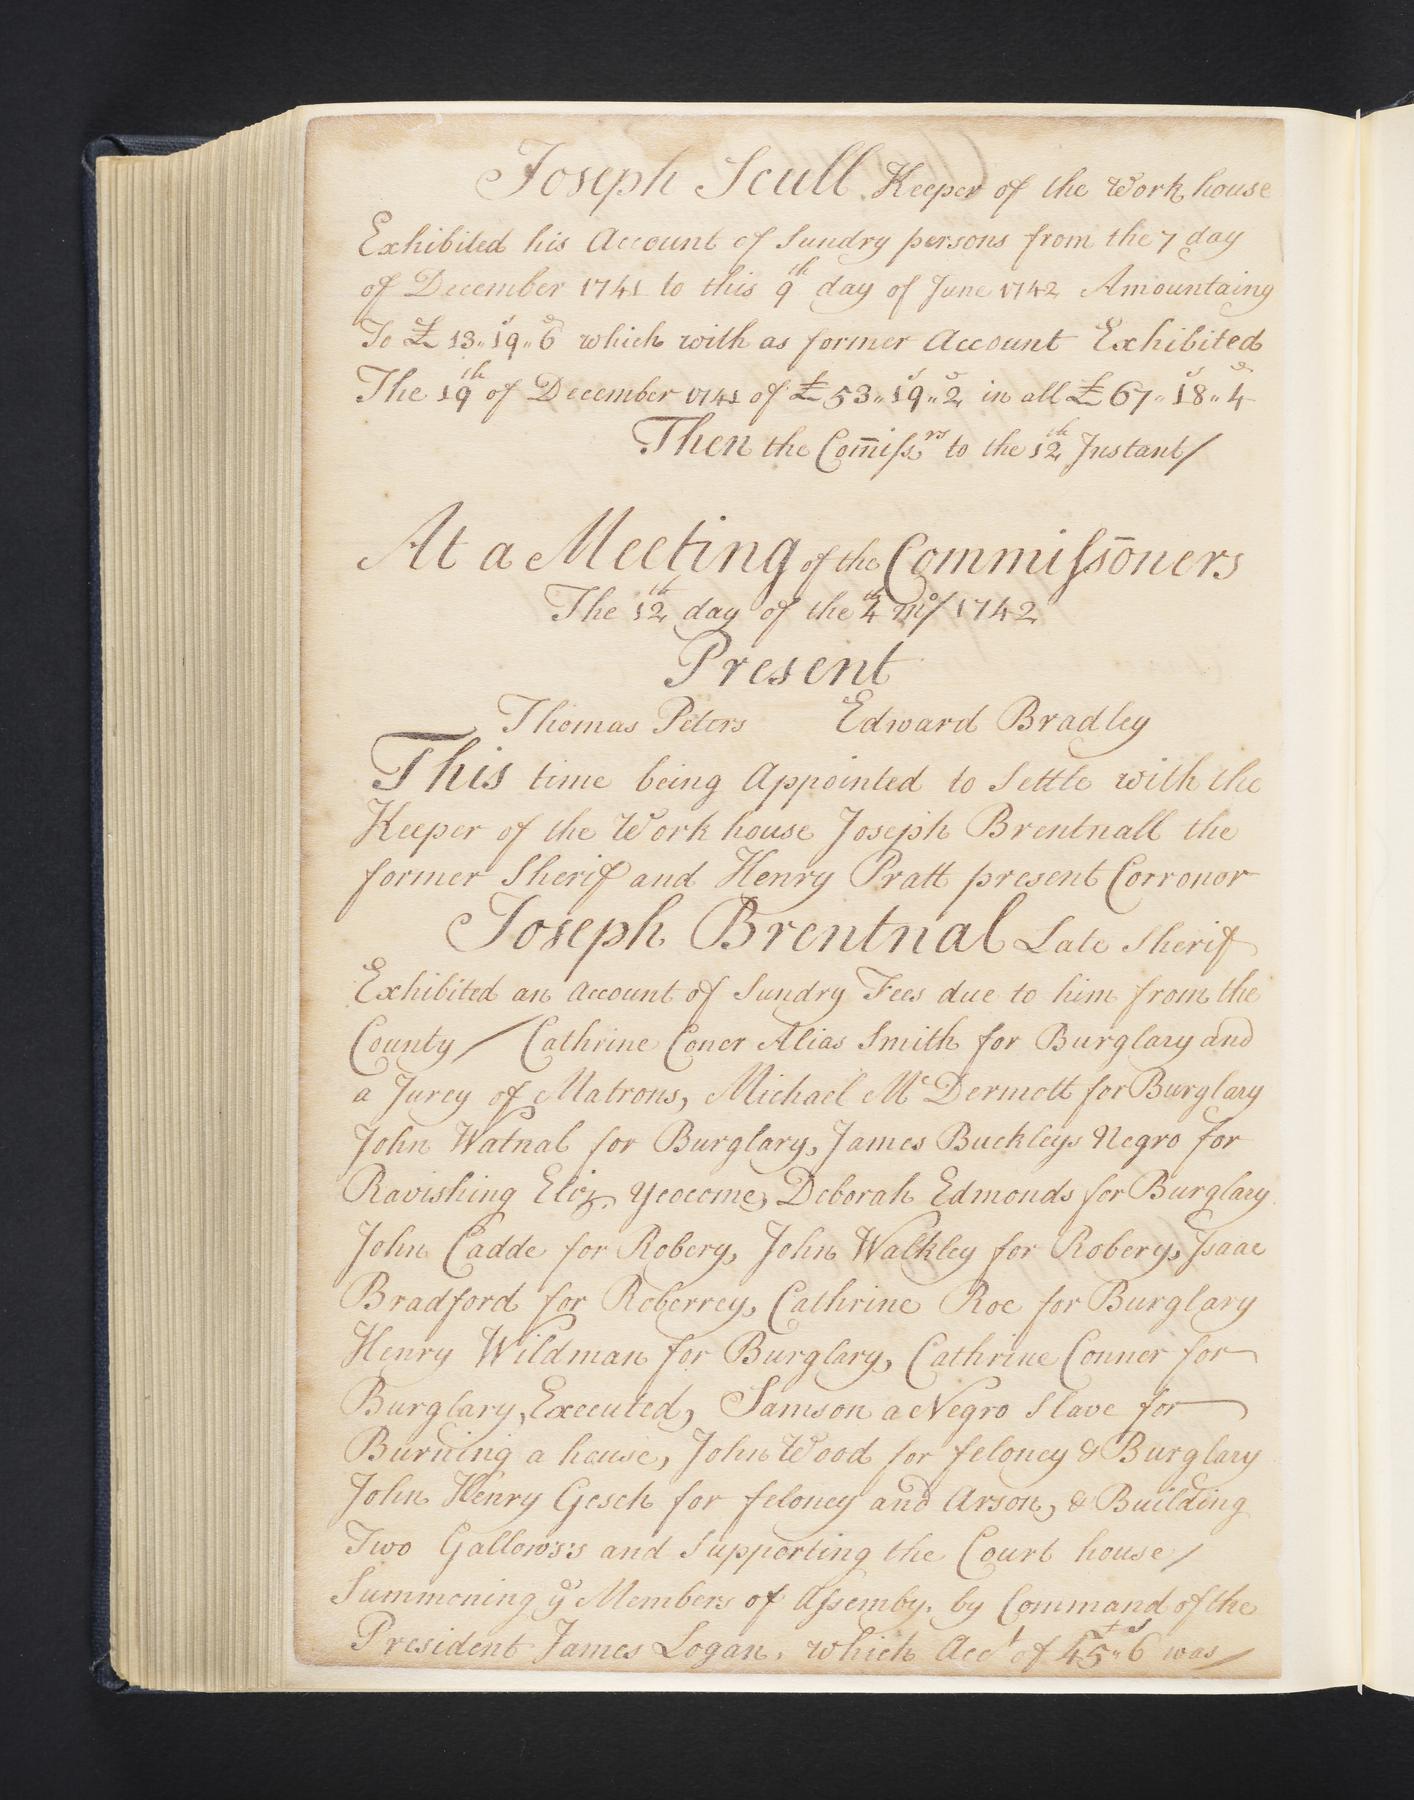 Joseph Scull Keeper of the Work house
Exhibited his Account of Sundry persons from the 7 day
of December 1741 to this 9th day of June 1742 Amountaing
To £ 13..19..6 which with as former Account Exhibited
The 19th of December 1741 of £ 53..19..2 in all £ 67..18..4
Then the Com̄issrs to the 12th Instant/
At a Meeting of the Commissōners
The 12th day of the 4th mo/ 1742
Present
Thomas Peters Edward Bradley
This time being Appointed to Settle with the
Keeper of the Work house Joseph Brentnall the
former Sherif and Henry Pratt present Corronor
Joseph Brentnal Late Sherif
Exhibited an Account of Sundry Fees due to him from the
County / Cathrine Coner Alias Smith for Burglary and
a Jurey of Matrons, Michael McDermott for Burglary
John Watnal for Burglary, James Buckleys Negro for
Ravishing Eliz. Yeocome, Deborah Edmonds for Burglary
John Cadde for Robery, John Walkley for Robery, Isaac
Bradford for Roberrey, Cathrine Roe for Burglary
Henry Wildman for Burglary, Cathrine Conner for
Burglary, Executed, Samson a Negro Slave for
Burning a house, John Wood for feloney & Burglary
John Henry Gesch for feloney and Arson, & Building
Two Gallows's and Supporting the Court house /
Summoning ye Members of Assemby. by Command of the
President James Logan, which Acct of 45..6 was /